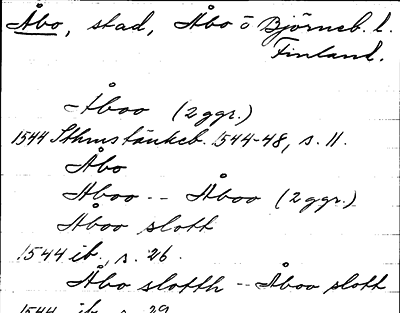 Åbo, stad, Åbo o Björneb. l.
Finland.
Åboo (2 ggr.)
1544 Sthms tänkeb. 1544-48, s. 11.
Åbo
Aboo -- Åboo (2 ggr.)
Åboo slott
1544 ib., s. 26.
Åbo slotth -- Åboo slott
1544 ib. s. 29